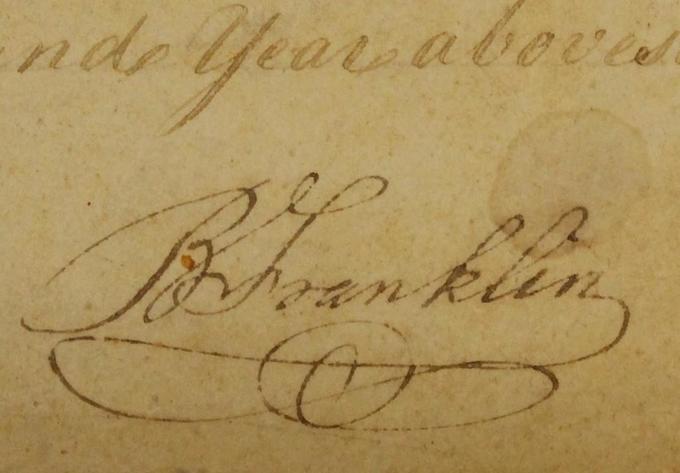 nd Year aboves
B Franklin